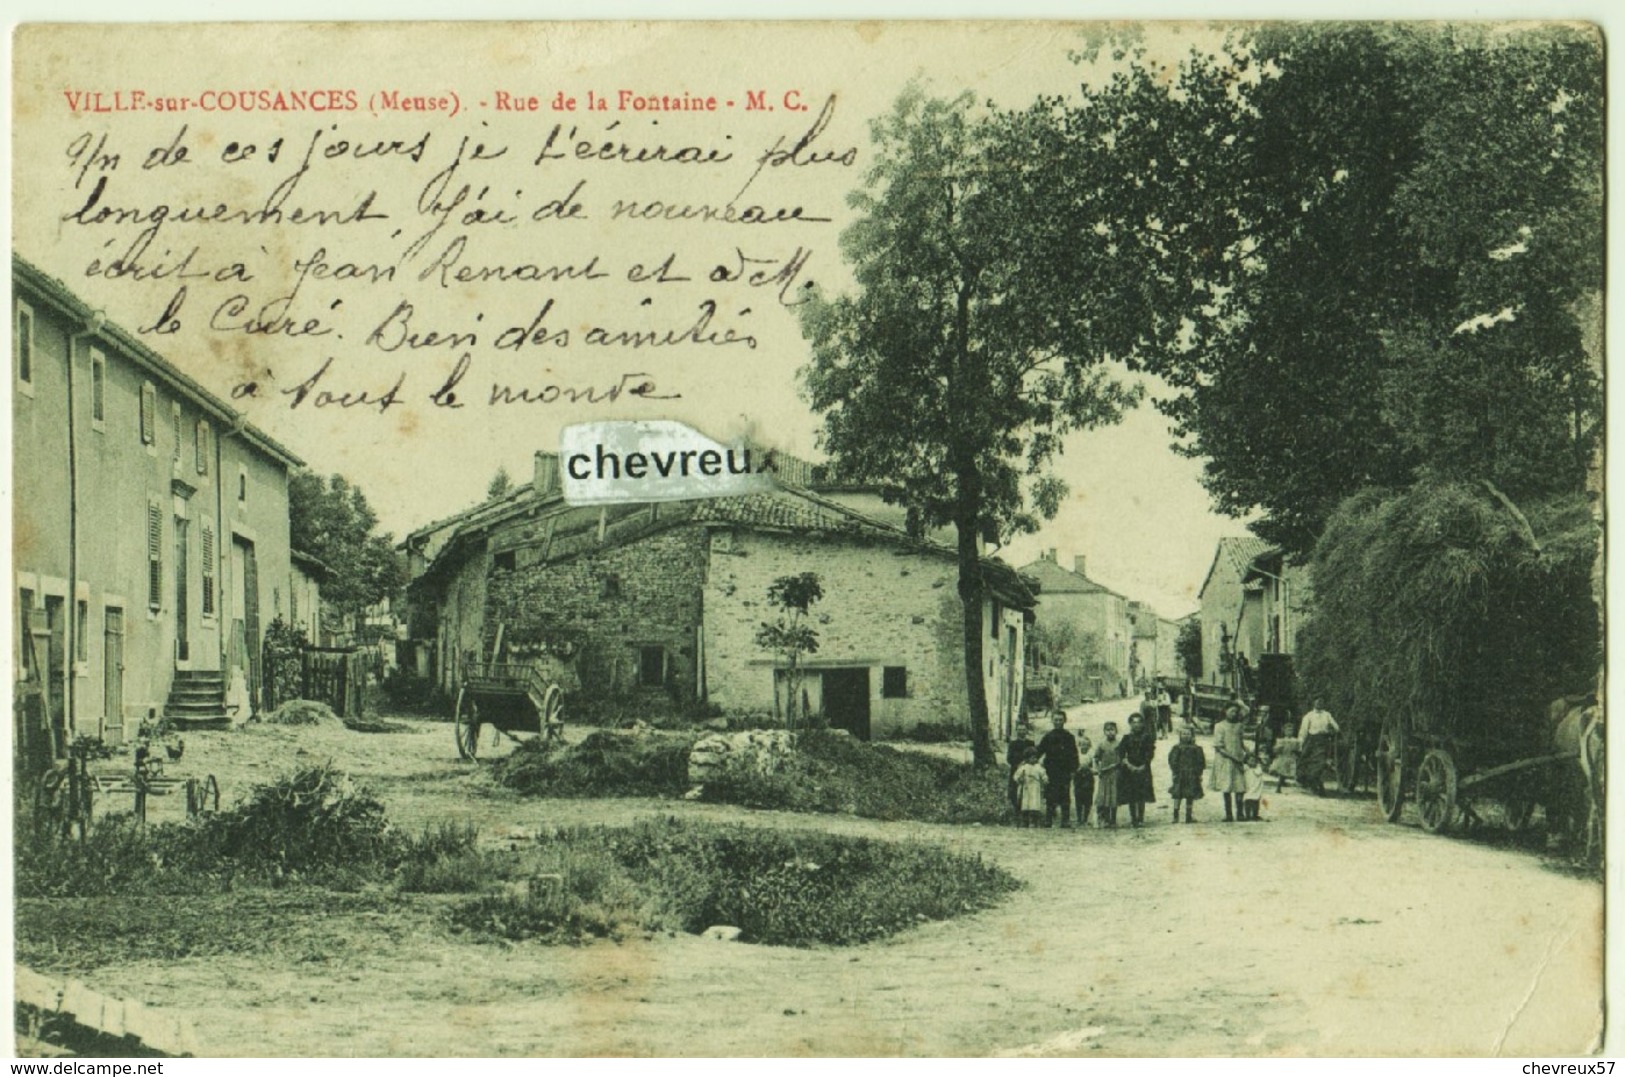 VILLE-sur-COUSANCES (Meuse). - Rue de la Fontaine - M. C.
Un de ces jours je t'écrirai plus
longuement. J'ai de nouveau
écrit à Jean Renant et à M.
le Curé. Bien des amitiés
à tout le monde
chevreux
www.delcampe.net
chevreux57